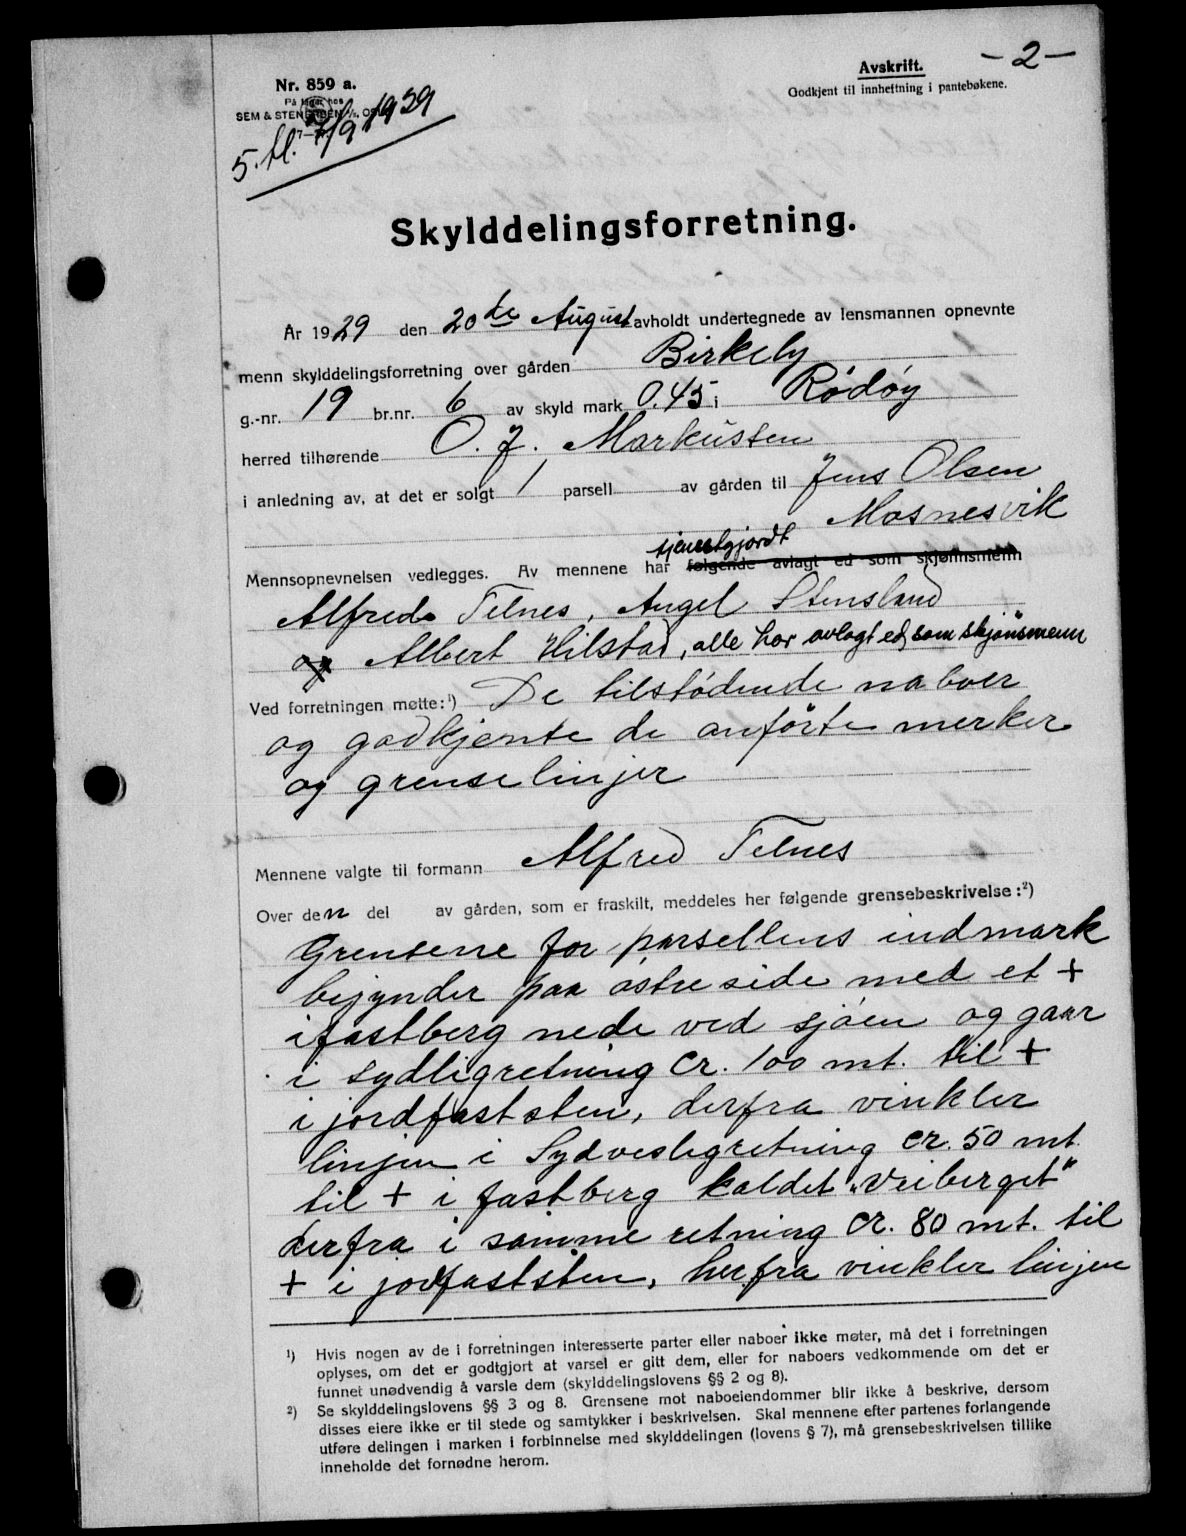 - 2 -
Avskrift.
Godkjent til innheftning i pantebøkene.
Nr. 859 a.
På lager hos
SEM & STENERSEN A/S, OSLO
5. bl. 7/9 1929
Skylddelingsforretning.
År 1929 den 20de August avholdt undertegnede av lensmannen opnevnte
menn skylddelingsforretning over gården Birkely
g.-nr. 19 br.nr. 6 av skyld mark 0.45 i Rødøy
herred tilhørende O. J. Markussen
i anledning av, at det er solgt 1 parsell av gården til Jens Olsen
Mosnesvik
tjenestgjordt
Mennsopnevnelsen vedlegges. Av mennene har følgende avlagt ed som skjønnsmenn
Alfred Telnes, Angel Stensland
og Albert Hilstad, alle har avlagt ed som skjønsmenn
Ved forretningen møtte:¹) De tilstødende naboer
og godkjente de anførte merker
og grenselinjer
Mennene valgte til formann Alfred Telnes
Over den del av gården, som er fraskilt, meddeles her følgende grensebeskrivelse:²)
Grensene for parsellens indmark
begynder paa østre side med et +
i fastberg nede ved sjøen og gaar
i sydligretning cr. 100 mt. til +
i jordfaststen, derfra vinkler
linjen i Sydvestligretning cr. 50 mt.
til + i fastberg kaldet "Veiberget"
derfra i samme retning cr. 80 mt. til
+ i jordfaststen, herfra vinkler linjen
¹) Hvis nogen av de i forretningen interesserte parter eller naboer ikke møter, må det i forretningen
oplyses, om det er godtgjort at varsel er gitt dem, eller for naboers vedkommende om det er
funnet unødvendig å varsle dem (skylddelingslovens §§ 2 og 8).
²) Se skylddelingslovens §§ 3 og 8. Grensene mot naboeiendommer blir ikke å beskrive, dersom
disses eiere ikke er til stede og samtykker i beskrivelsen. Skal mennene efter partenes forlangende
utføre delingen i marken i forbinnelse med skylddelingen (lovens § 7), må grensebeskrivelsen tillike
inneholde det fornødne herom.